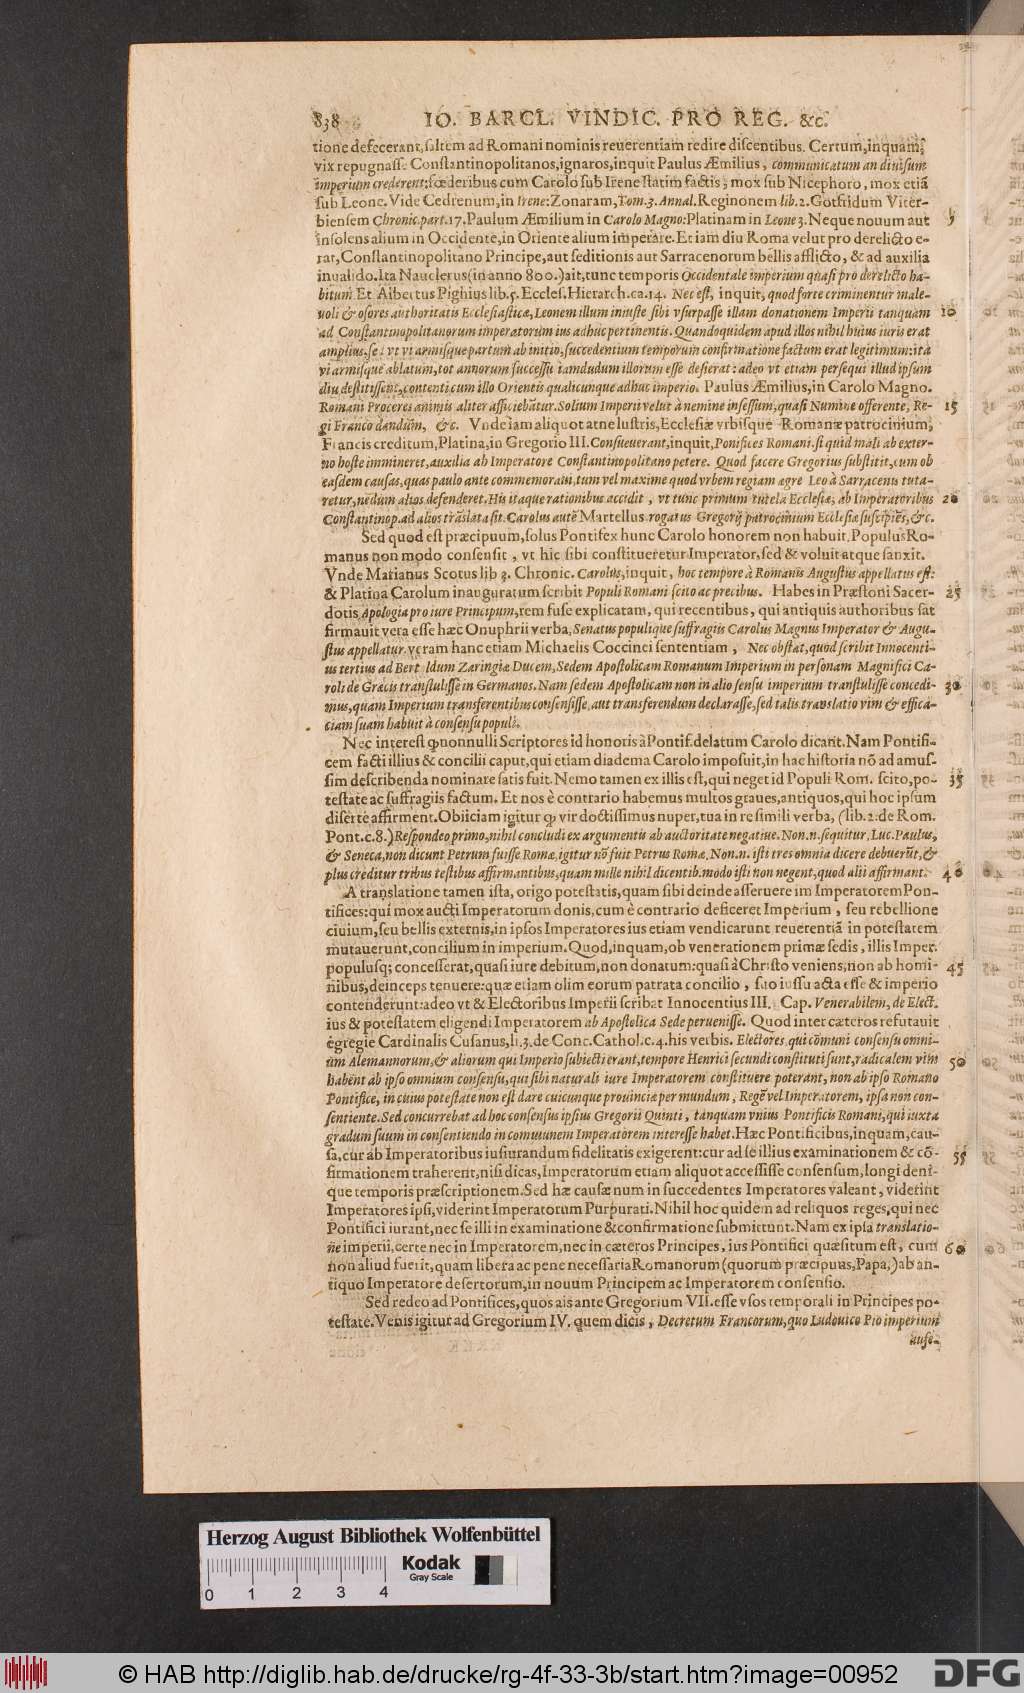 838 IO. BARCL. VINDIC. PRO REG. &c.
tione defecerant, saltem ad Romani nominis reuerentiam redire discentibus. Certum, inquam,
vix repugnasse Constantinopolitanos, ignaros, inquit Paulus Æmilius, communicatum an diuisum
imperium crederent; fœderibus cum Carolo sub Irene statim factis; mox sub Nicephoro, mox etiā
sub Leone. Vide Cedrenum, in Irene: Zonaram, Tom. 3. Annal. Reginonem lib. 2. Gotfridum Viter-
biensem Chronic. part. 17. Paulum Æmilium in Carolo Magno: Platinam in Leone 3. Neque nouum aut 5
insolens alium in Occidente, in Oriente alium imperare. Et iam diu Roma velut pro derelicto e-
rat, Constantinopolitano Principe, aut seditionis aut Sarracenorum bellis afflicto, & ad auxilia
inualido. Ita Nauclerus (in anno 800.) ait, tunc temporis Occidentale imperium quasi pro derelicto ha-
bitum Et Albertus Pighius lib. 5. Eccles. Hierarch. ca. 14. Nec est, inquit, quod forte criminentur male-
uoli & osores authoritatis Ecclesiasticæ, Leonem illum iniuste sibi vsurpasse illam donationem Imperii tanquam 10
ad Constantinopolitanorum imperatorum ius adhuc pertinentis. Quandoquidem apud illos nihil huius iuris erat
amplius, sed vt vi armisque partum ab initio, succedentium temporum confirmatione factum erat legitimum: ita
vi armisque ablatum, tot annorum successu iamdudum illorum esse desierat: adeo vt etiam persequi illud ipsum
diu destitissent, contenti cum illo Orientis qualicunque adhuc imperio. Paulus Æmilius, in Carolo Magno.
Romani Proceres animis aliter afficiebātur. Solium Imperii velut à nemine insessum, quasi Numine offerente, Re- 15
gi Franco dandum, &c. Vnde iam aliquot at ne lustris, Ecclesiæ vrbisque Romanæ patrocinium,
Francis creditum, Platina, in Gregorio III. Consueuerant, inquit, Pontifices Romani. si quid mali ab exter-
no hoste immineret, auxilia ab Imperatore Constantinopolitano petere. Quod facere Gregorius substitit, cum ob
easdem causas, quas paulo ante commemoraui, tum vel maxime quod vrbem regiam ægre Leo à Sarracenis tuta-
retur, nedum alios defenderet. His itaque rationibus accidit, vt tunc primum tutela Ecclesiæ, ab Imperatoribus 20
Constantinop. ad alios trāslata sit. Carolus autē Martellus rogatus Gregorij patrocinium Ecclesiæ suscipiēs, &c.
Sed quod est præcipuum, solus Pontifex hunc Carolo honorem non habuit. Populus Ro-
manus non modo consensit, vt hic sibi constitueretur Imperator, sed & voluit atque sanxit.
Vnde Marianus Scotus lib 3. Chronic. Carolus, inquit, hoc tempore à Romanis Augustus appellatus est:
& Platina Carolum inauguratum scribit Populi Romani scito ac precibus. Habes in Præstoni Sacer- 25
dotis Apologia pro iure Principum, rem fuse explicatam, qui recentibus, qui antiquis authoribus sat
firmauit vera esse hæc Onuphrii verba, Senatus populique suffragiis Carolus Magnus Imperator & Augu-
stus appellatur. veram hanc etiam Michaelis Coccinei sententiam, Nec obstat, quod scribit Innocenti-
us tertius ad Bert ldum Zaringiæ Ducem, Sedem Apostolicam Romanum Imperium in personam Magnifici Ca-
roli de Græcis transtulisse in Germanos. Nam sedem Apostolicam non in alio sensu imperium transtulisse concedi- 30
mus, quam Imperium transferentibus consensisse, aut transferendum declarasse, sed talis translatio vim & effica-
ciam suam habuit à consensu populi.
Nec interest ꝙ nonnulli Scriptores id honoris à Pontif. delatum Carolo dicant. Nam Pontifi-
cem facti illius & concilii caput, qui etiam diadema Carolo imposuit, in hac historia nō ad amus-
sim describenda nominare satis fuit. Nemo tamen ex illis est, qui neget id Populi Rom. scito, po- 35
testate ac suffragiis factum. Et nos è contrario habemus multos graues, antiquos, qui hoc ipsum
diserte affirment. Obiiciam igitur ꝙ vir doctissimus nuper, tua in re simili verba, (lib. 2. de Rom.
Pont. c. 8.) Respondeo primo, nihil concludi ex argumentis ab auctoritate negatiue. Non. n. sequitur, Luc. Paulus,
& Seneca, non dicunt Petrum fuisse Romæ, igitur nō fuit Petrus Romæ, Non. n. isti tres omnia dicere debuerūt, &
plus creditur tribus testibus affirmantibus, quam mille nihil dicentib. modo isti non negent, quod alii affirmant. 40
A translatione tamen ista, origo potestatis, quam sibi deinde asseruere im Imperatorem Pon-
tifices: qui mox aucti Imperatorum donis, cum è contrario deficeret Imperium, seu rebellione
ciuium, seu bellis externis, in ipsos Imperatores ius etiam vendicarunt reuerentiā in potestatem
mutauerunt, concilium in imperium. Quod, inquam, ob venerationem primæ sedis, illis Imper.
populusq; concesserat, quasi iure debitum, non donatum: quasi à Christo veniens, non ab homi- 45
nibus, deinceps tenuere: quæ etiam olim eorum patrata concilio, suo iussu acta esse & imperio
contenderunt: adeo vt & Electoribus Imperii scribat Innocentius III. Cap. Venerabilem, de Elect.
ius & potestatem eligendi Imperatorem ab Apostolica Sede peruenisse. Quod inter cæteros refutauit
egregie Cardinalis Cusanus, li. 3. de Conc. Cathol. c. 4. his verbis. Electores, qui cōmuni consensu omni-
um Alemannorum, & aliorum qui Imperio subiecti erant, tempore Henrici secundi constituti sunt, radicalem vim 50
habent ab ipso omnium consensu, qui sibi naturali iure Imperatorem constituere poterant, non ab ipso Romano
Pontifice, in cuius potestate non est dare cuicunque prouinciæ per mundum, Regē vel Imperatorem, ipsa non con-
sentiente. Sed concurrebat ad hoc consensus ipsius Gregorii Quinti, tanquam vnius Pontificis Romani, qui iuxta
gradum suum in consentiendo in communem Imperatorem interesse habet. Hæc Pontificibus, inquam, cau-
sa, cur ab Imperatoribus iusiurandum fidelitatis exigerent: cur ad se illius examinationem & cō- 55
firmationem traherent, nisi dicas, Imperatorum etiam aliquot accessisse consensum, longi deni-
que temporis præscriptionem. Sed hæ causæ num in succedentes Imperatores valeant, viderint
Imperatores ipsi, viderint Imperatorum Purpurati. Nihil hoc quidem ad reliquos reges, qui nec
Pontifici iurant, nec se illi in examinatione & confirmatione submittunt. Nam ex ipsa translatio-
ne imperii, certe nec in Imperatorem, nec in cæteros Principes, ius Pontifici quæsitum est, cum 60
non aliud fuerit, quam libera ac pene necessaria Romanorum (quorum præcipuus, Papa,) ab an-
tiquo Imperatore desertorum, in nouum Principem ac Imperatorem consensio.
Sed redeo ad Pontifices, quos ais ante Gregorium VII. esse vsos temporali in Principes po-
testate. Venis igitur ad Gregorium IV. quem dicis, Decretum Francorum, quo Ludouico Pio imperium
aufe-
Herzog August Bibliothek Wolfenbüttel
Kodak
Gray Scale
0 1 2 3 4
© HAB http://diglib.hab.de/drucke/rg-4f-33-3b/start.htm?image=00952
DFG